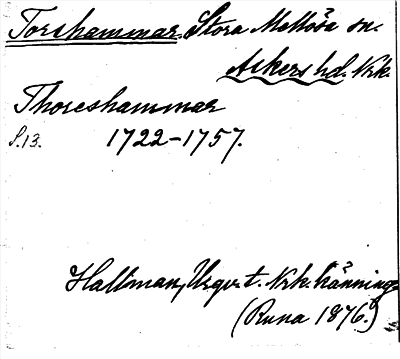 Torshammar. Stora Mellösa sn.
Askers hd. Nrk.
Thoreshammar
S.13. 1722-1757.
Hallman, t. Nrk.
(Runa 1876.)